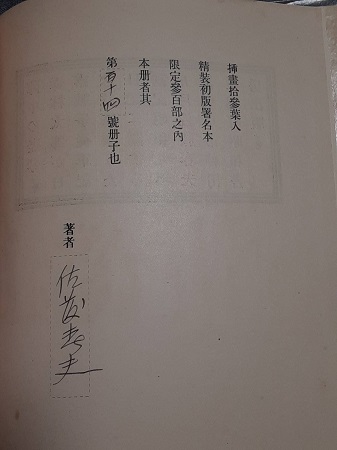 挿畫拾參葉入
精裝初版署名本
限定參百部之內
本册者其
第百十四號册子也
著者
佐藤春夫